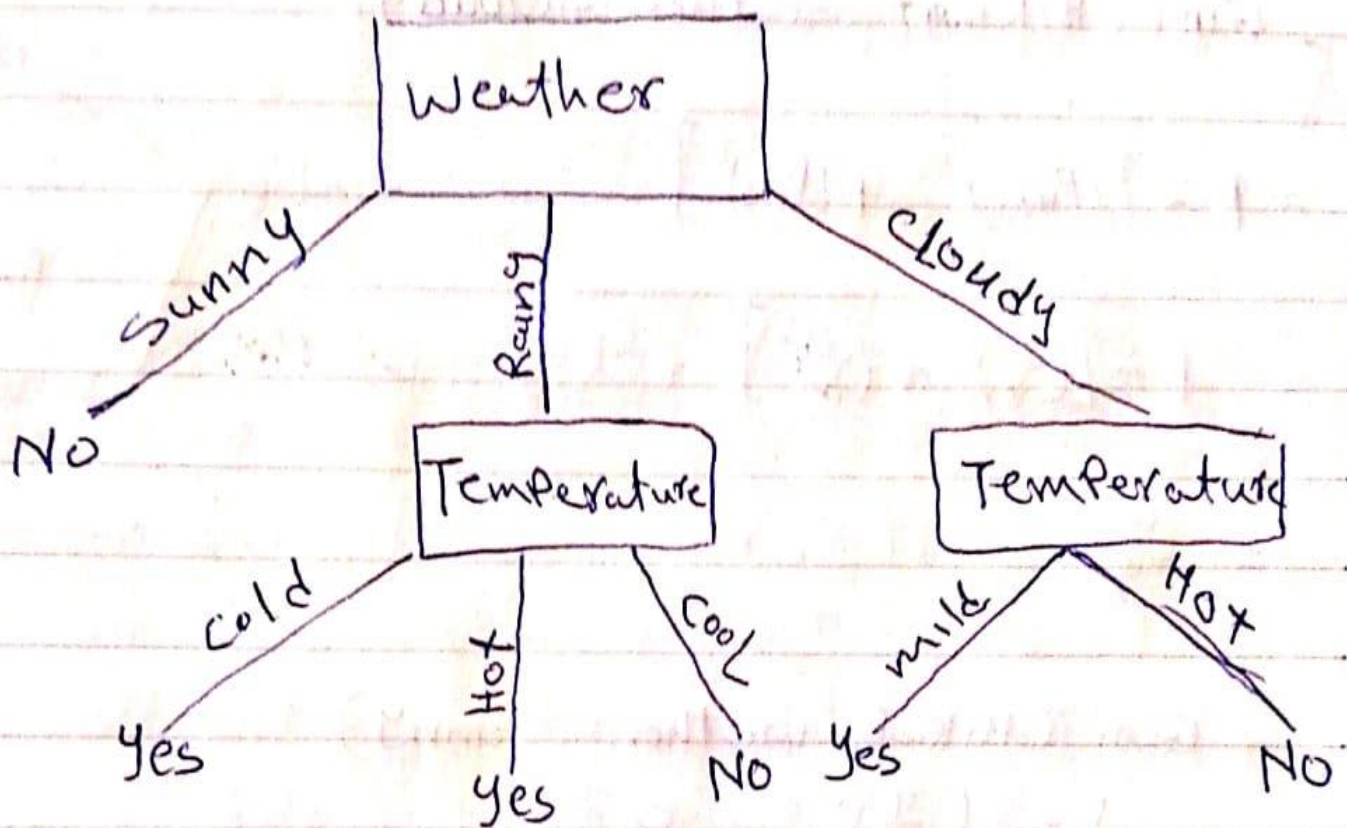 Weather
Sunny
Rainy
Cloudy
NO
Temperature
Temperature
Cold
Hot
Cool
mild
Hot
Yes
Yes
NO
Yes
NO